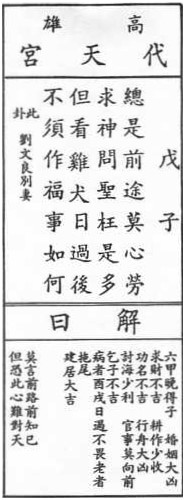 高雄
代天宮
戊子
總是前途莫心勞
求神問聖枉是多
但看雞犬日過後
不須作福事如何
此卦 劉文良別妻
解曰
六甲晚得子 婚姻大凶
求財不吉 耕作少收
功名不吉 行舟大凶
討海少利 官事莫向前
乞子不吉
病者酉戌日過不畏老者
拖尾
建居大吉
莫言前路前知已
但恐此心難對天